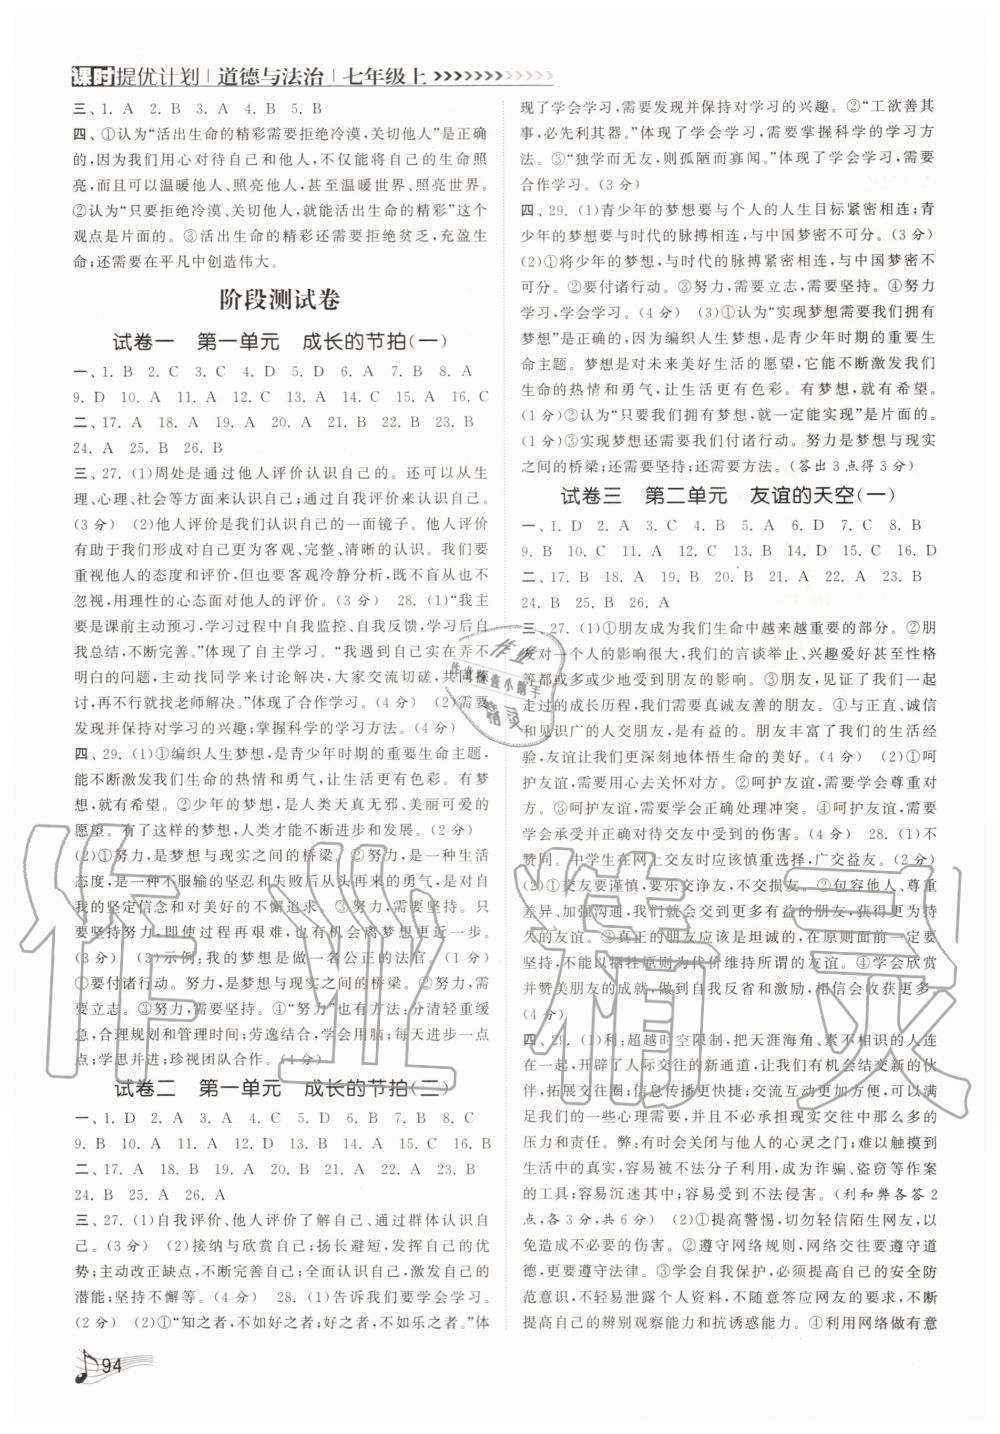 课时提优计划|道德与法治|七年级上
三、1. A 2. B 3. A 4. B 5. B
四、①认为“活出生命的精彩需要拒绝冷漠,关切他人”是正确
的,因为我们用心对待自己和他人,不仅能将自己的生命照
亮,而且可以温暖他人、照亮他人,甚至温暖世界、照亮世界。
②认为“只要拒绝冷漠、关切他人,就能活出生命的精彩”这个
观点是片面的。③活出生命的精彩还需要拒绝贫乏,充盈生
命;还需要在平凡中创造伟大。
阶段测试卷
试卷一 第一单元 成长的节拍(一)
一、1. B 2. C 3. C 4. D 5. D 6. A 7. B 8. A
9. D 10. A 11. A 12. C 13. A 14. C 15. A 16. C
二、17. A 18. A 19. A 20. A 21. B 22. B 23. B
24. A 25. B 26. B
三、27. (1)周处是通过他人评价认识自己的。还可以从生
理、心理、社会等方面来认识自己;通过自我评价来认识自己。
(3分) (2)他人评价是我们认识自己的一面镜子。他人评价
有助于我们形成对自己更为客观、完整、清晰的认识。我们要
重视他人的态度和评价,但要客观冷静分析,既不能盲从,也不能
忽视,用理性的心态面对他人的评价。(3分) 28. (1)“我主
要是课前主动预习,学习过程中自我监控、自我反馈,学习后自
我总结,不断完善。”体现了自主学习。“我遇到自己实在弄不
明白的问题,主动找同学来讨论解决,大家交流切磋,共同探
讨,再不行就找老师解决。”体现了合作学习。(4分) (2)需要
发现并保持对学习的兴趣;掌握科学的学习方法。(4分)
四、29. (1)①编织人生梦想,是青少年时期的重要生命主题,
能不断激发我们生命的热情和勇气,让生活更有色彩。有梦
想,就有希望。②少年的梦想,是人类天真无邪、美丽可爱的
愿望。有了这样的梦想,人类才能不断进步和发展。(2分)
(2)①努力,是梦想与现实之间的桥梁。②努力,是一种生活
态度,是一种不服输的坚忍和失败后从头再来的勇气,是对自
我的坚定信念和对美好的不懈追求。③努力,需要坚持。只
要坚持努力,即使过程再艰难,也有机会离梦想更近一步。
(3分) (3)示例:我的梦想是做一名公正的法官。(1分)
①要付诸行动。②努力,需要坚持。③“努力”也有方法:分清轻重缓
急,合理规划和管理时间;劳逸结合,学会用脑;每天进步一点
点;学思并进;珍视团队合作。(4分)
试卷二 第一单元 成长的节拍(二)
一、1. D 2. A 3. A 4. C 5. D 6. A 7. B 8. C
9. B 10. A 11. A 12. D 13. A 14. B 15. C 16. B
二、17. A 18. B 19. B 20. A 21. A 22. A 23. B
24. B 25. A 26. A
三、27. (1)自我评价、他人评价了解自己、通过群体认识自
己。(3分) (2)接纳与欣赏自己;扬长避短,发挥自己的优
势;主动改正缺点,不断完善自己;全面认识自己,激发自己的
潜能;坚持不懈等。(4分) 28. (1)告诉我们要学会学习。
(2分) (2)①“知之者,不如好之者;好之者,不如乐之者。”体
现了学会学习,需要发现并保持对学习的兴趣。②“工欲善其
事,必先利其器。”体现了学会学习,需要掌握科学的学习方
法。③“独学而无友,则孤陋而寡闻。”体现了学会学习,需要
合作学习。(3分)
四、29. (1)青少年的梦想要与个人的人生目标紧密相连;青
少年的梦想要与时代的脉搏相连,与中国梦密不可分。(3分)
(2)①将少年的梦想,与时代的脉搏紧密相连,与中国梦密不
可分。②要付诸行动。③努力,需要立志,需要坚持。④努力
学习,学会学习。(4分) (3)①认为“实现梦想需要我们拥有
梦想”是正确的,因为编织人生梦想,是青少年时期的重要生
命主题。梦想是对未来美好生活的愿望,它能不断激发我们
生命的热情和勇气,让生活更有色彩。有梦想,就有希望。
(1分)②认为“只要我们拥有梦想,就一定能实现”是片面的。
(1分)③实现梦想还需要我们付诸行动。努力是梦想与现实
之间的桥梁;还需要坚持;还需要方法。(答出3点得3分)
试卷三 第二单元 友谊的天空(一)
一、1. D 2. A 3. C 4. B 5. A 6. D 7. C 8. B
9. B 10. C 11. A 12. C 13. B 14. D 15. C 16. D
二、17. B 18. A 19. B 20. A 21. B 22. A 23. A
24. B 25. B 26. A
三、27. (1)①朋友成为我们生命中越来越重要的部分。②朋
友对一个人的影响很大,我们的言谈举止、兴趣爱好甚至性格
等都或多或少地受到朋友的影响。③朋友见证了我们一起
走过的成长历程,我们需要真诚友善的朋友。④与正直、诚信
和见识广的人交朋友,是有益的。朋友丰富了我们的生活经
验,友谊让我们更深刻地体悟生命的美好。(4分) (2)①呵
护友谊,需要用心去关怀对方。②呵护友谊,需要学会尊重对
方。③呵护友谊,需要学会正确处理冲突。④呵护友谊,需要
学会承受并正确对待交友中受到的伤害。(4分) 28. (1)不
赞同。中学生在网上交友时应该慎重选择,广交益友。(2分)
(2)①交友要谨慎,要乐交诤友,不交损友。②包容他人、尊重
差异、加强沟通,我们就会交到更多的朋友,获得更为持
久的友谊。③真正的朋友应该是坦诚的,在原则面前一定要
坚持,不能以牺牲原则为代价维持所谓的友谊。④学会欣赏
并赞美朋友的成就,做到自我反省和激励,相信会收获更多。
(4分)
四、29. (1)利:超越时空限制,把天涯海角、素不相识的人连
在一起,开辟了人际交往的新通道,让我们有机会结交新的伙
伴,拓展交往圈;信息传播更快捷;交流互动更方便;可以满足
我们的一些心理需要,并且不必承担现实交往中那么多的
压力和责任。弊:有时会关闭与他人的心灵之门;难以触摸到
生活中的真实,容易被不法分子利用,成为诈骗、盗窃等作案
的工具;容易沉迷其中;容易受到不法侵害。(利和弊各答2
点,各3分,共6分) (2)①提高警惕,切勿轻信陌生网友,以
免造成不必要的伤害。②遵守网络规则,网上交往要遵守道
德,更要遵守法律。③学会自我保护,必须提高自己的安全防
范意识,不轻易泄露个人资料,不随意答应网友的要求,不断
提高自己的辨别观察能力和抗诱惑能力。④利用网络做有意
94
作业精灵